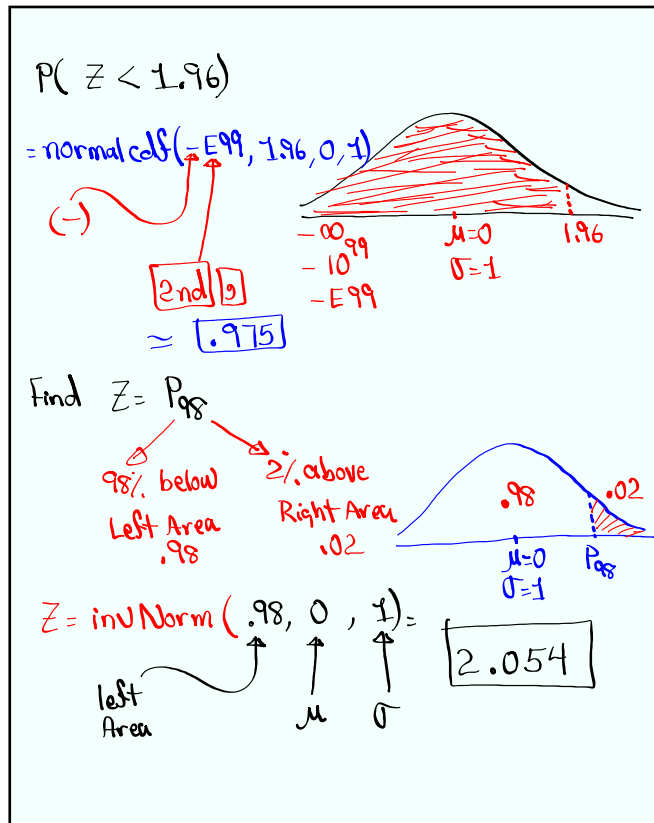 P( Z < 1.96)
= normalcdf(-E99, 1.96, 0, 1)
(-)
2nd ,
≈ .975
-∞
-10^99
-E99
μ=0
σ=1
1.96
Find Z = P98
98% below
Left Area
.98
2% above
Right Area
.02
.98
.02
μ=0
σ=1
P98
Z = invNorm( .98, 0 , 1)= 2.054
left
Area
μ
σ